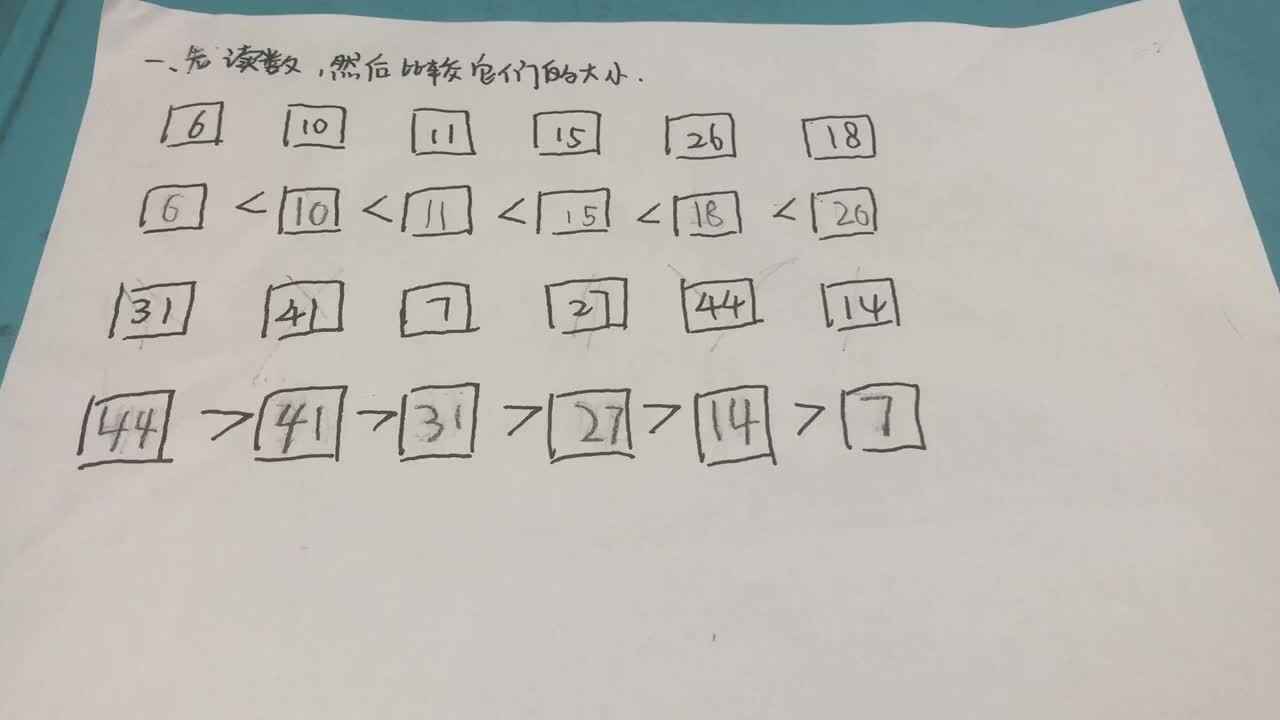 一、先读数,然后比较它们的大小.
6 10 11 15 26 18
6 < 10 < 11 < 15 < 18 < 26
31 41 7 27 44 14
44 > 41 > 31 > 27 > 14 > 7